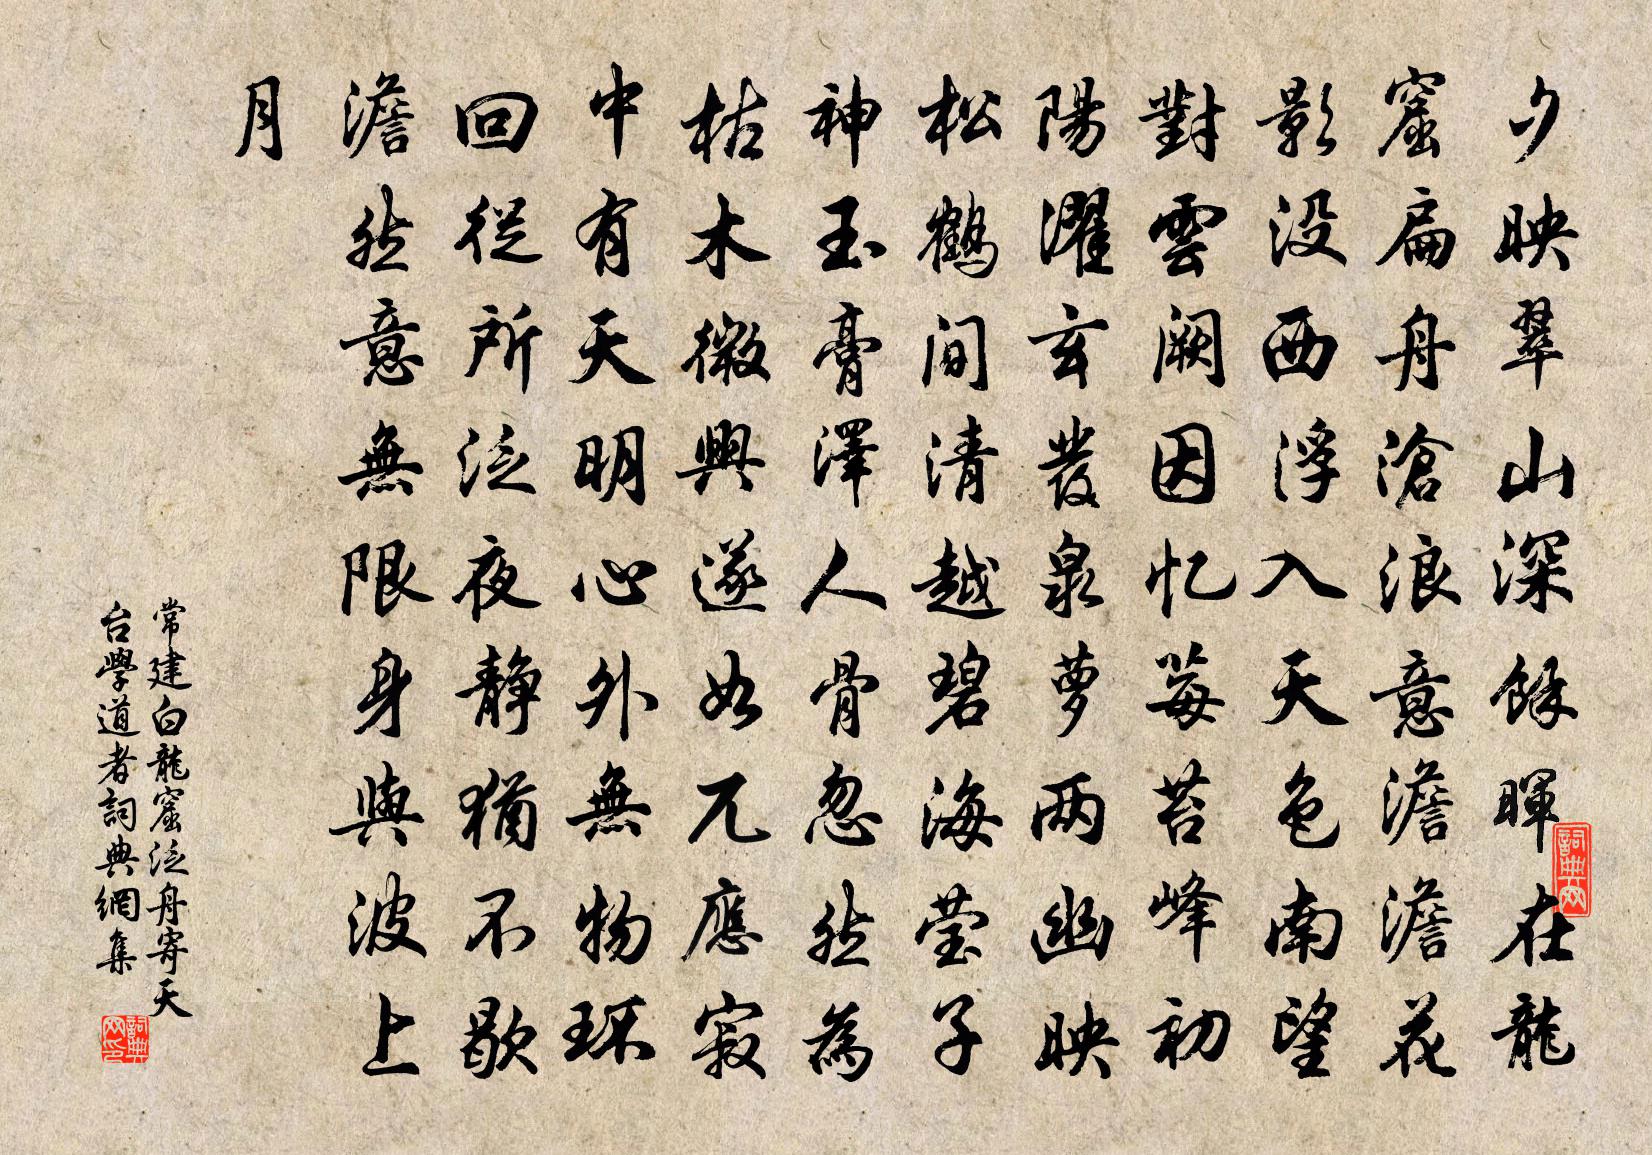 夕映翠山深餘暉在龍
窟扁舟滄浪意澹澹花
影没西浮入天色南望
對雲闕因忆莓苔峰初
陽濯玄發泉萝两幽映
松鶴间清越碧海莹子
神玉膏澤人骨忽然為
枯木微興遂如兀應寂
中有天明心外無物环
回從所泛夜静猶不歇
澹然意無限身與波上
月
常建白龍窟泛舟寄天
台學道者詞典網集
詞典网
詞典网印